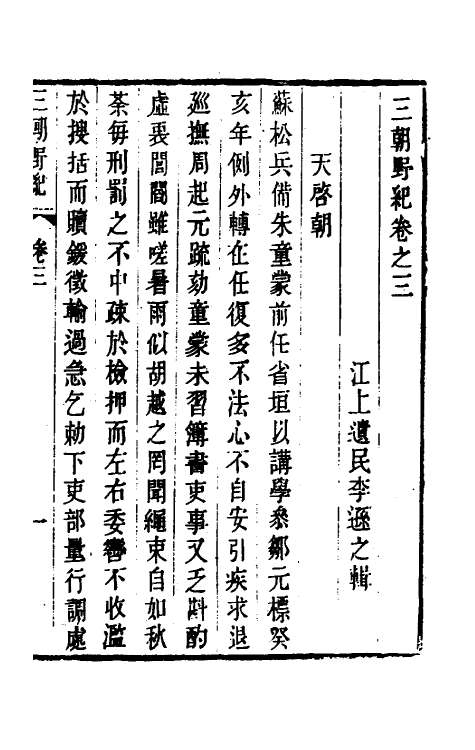 三朝野紀卷之三
江上遺民李遜之輯
天啓朝
蘇松兵備朱童蒙前任省垣以講學叅鄒元標癸
亥年例外轉在任復多不法心不自安引疾求退
巡撫周起元疏劾童蒙未習簿書吏事又乏斟酌
虛衷閭閻雖嗟暑雨似胡越之罔聞繩束自如秋
荼每刑罰之不中疎於檢押而左右委轡不收濫
於搜括而贖鍰徵輸過急乞勅下吏部量行調處
三朝野紀
卷三
一